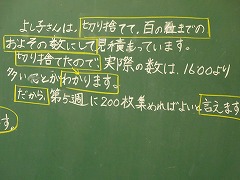 よし子さんは、切り捨てて、百の位までの
およその数にして見積もっています。
切り捨てたので実際の数は、1600より
多いことがわかります。
だから、第5週に200枚集めればよいと言えます
す。